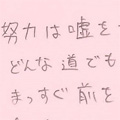 努力は嘘を
どんな道でも
まっすぐ前を